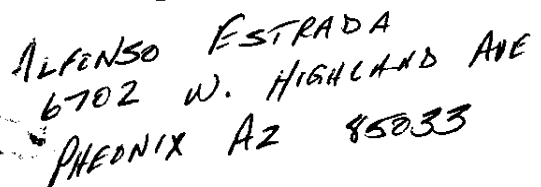 ALFONSO ESTRADA
6702 W. HIGHLAND AVE
PHEONIX AZ 85033